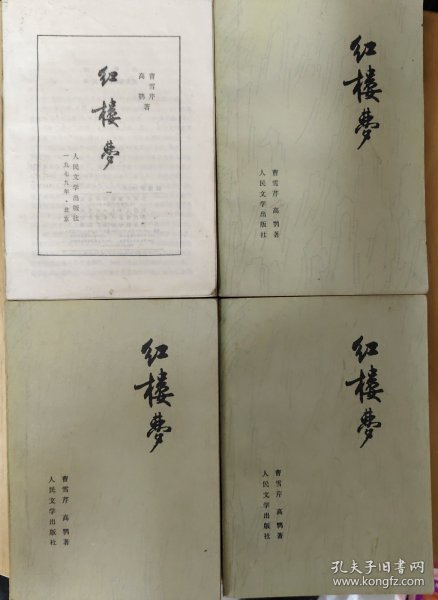 曹雪芹
高鹗 著
红楼梦
一
人民文学出版社
一九七九年·北京
红楼梦
曹雪芹 高鹗著
人民文学出版社
红楼梦
曹雪芹 高鹗著
人民文学出版社
红楼梦
曹雪芹 高鹗著
人民文学出版社
孔夫子旧书网
book.kongfz.com